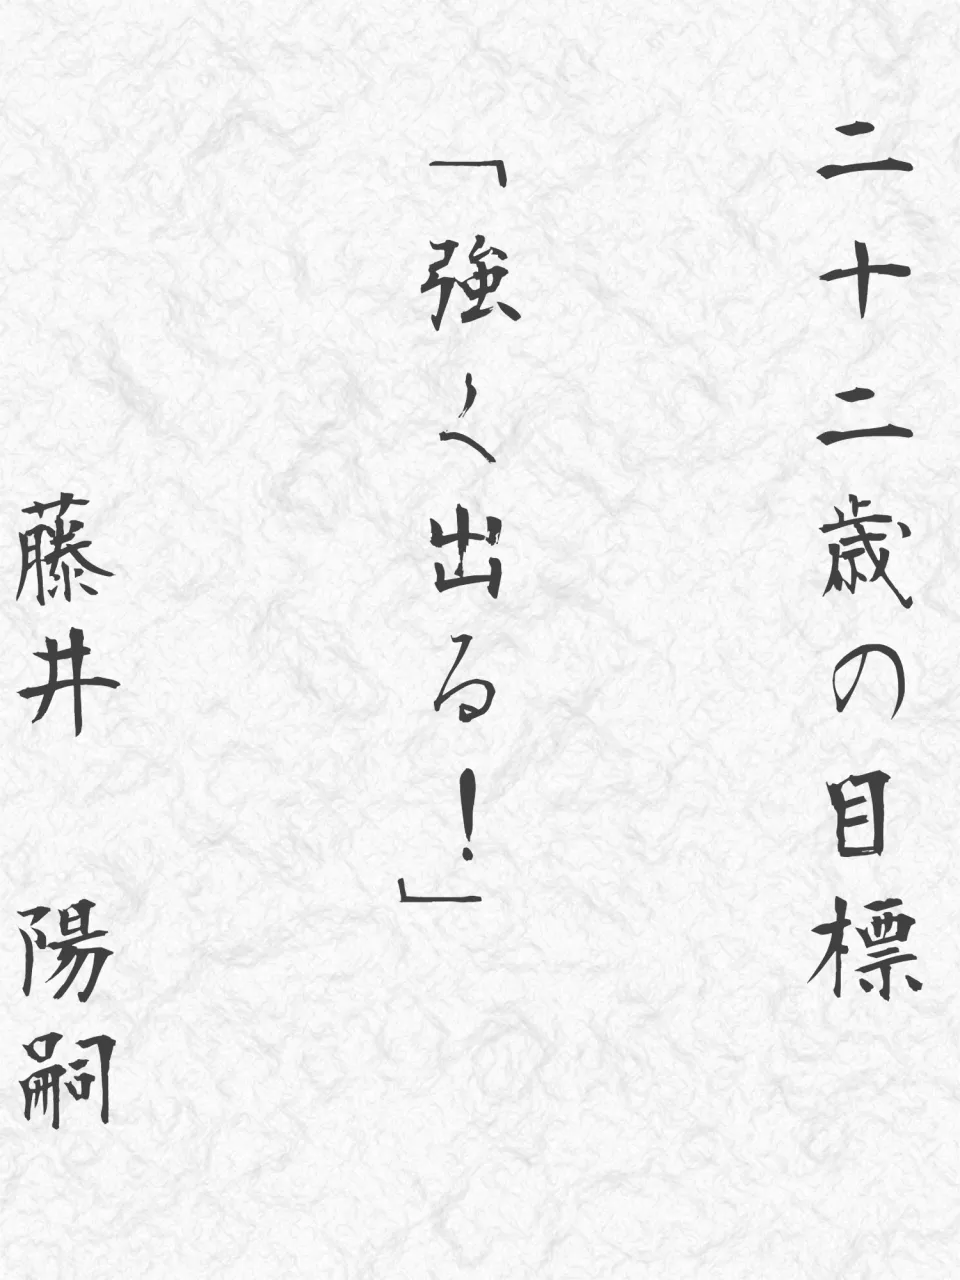 二十二歳の目標
「強く出る!」
藤井 陽嗣